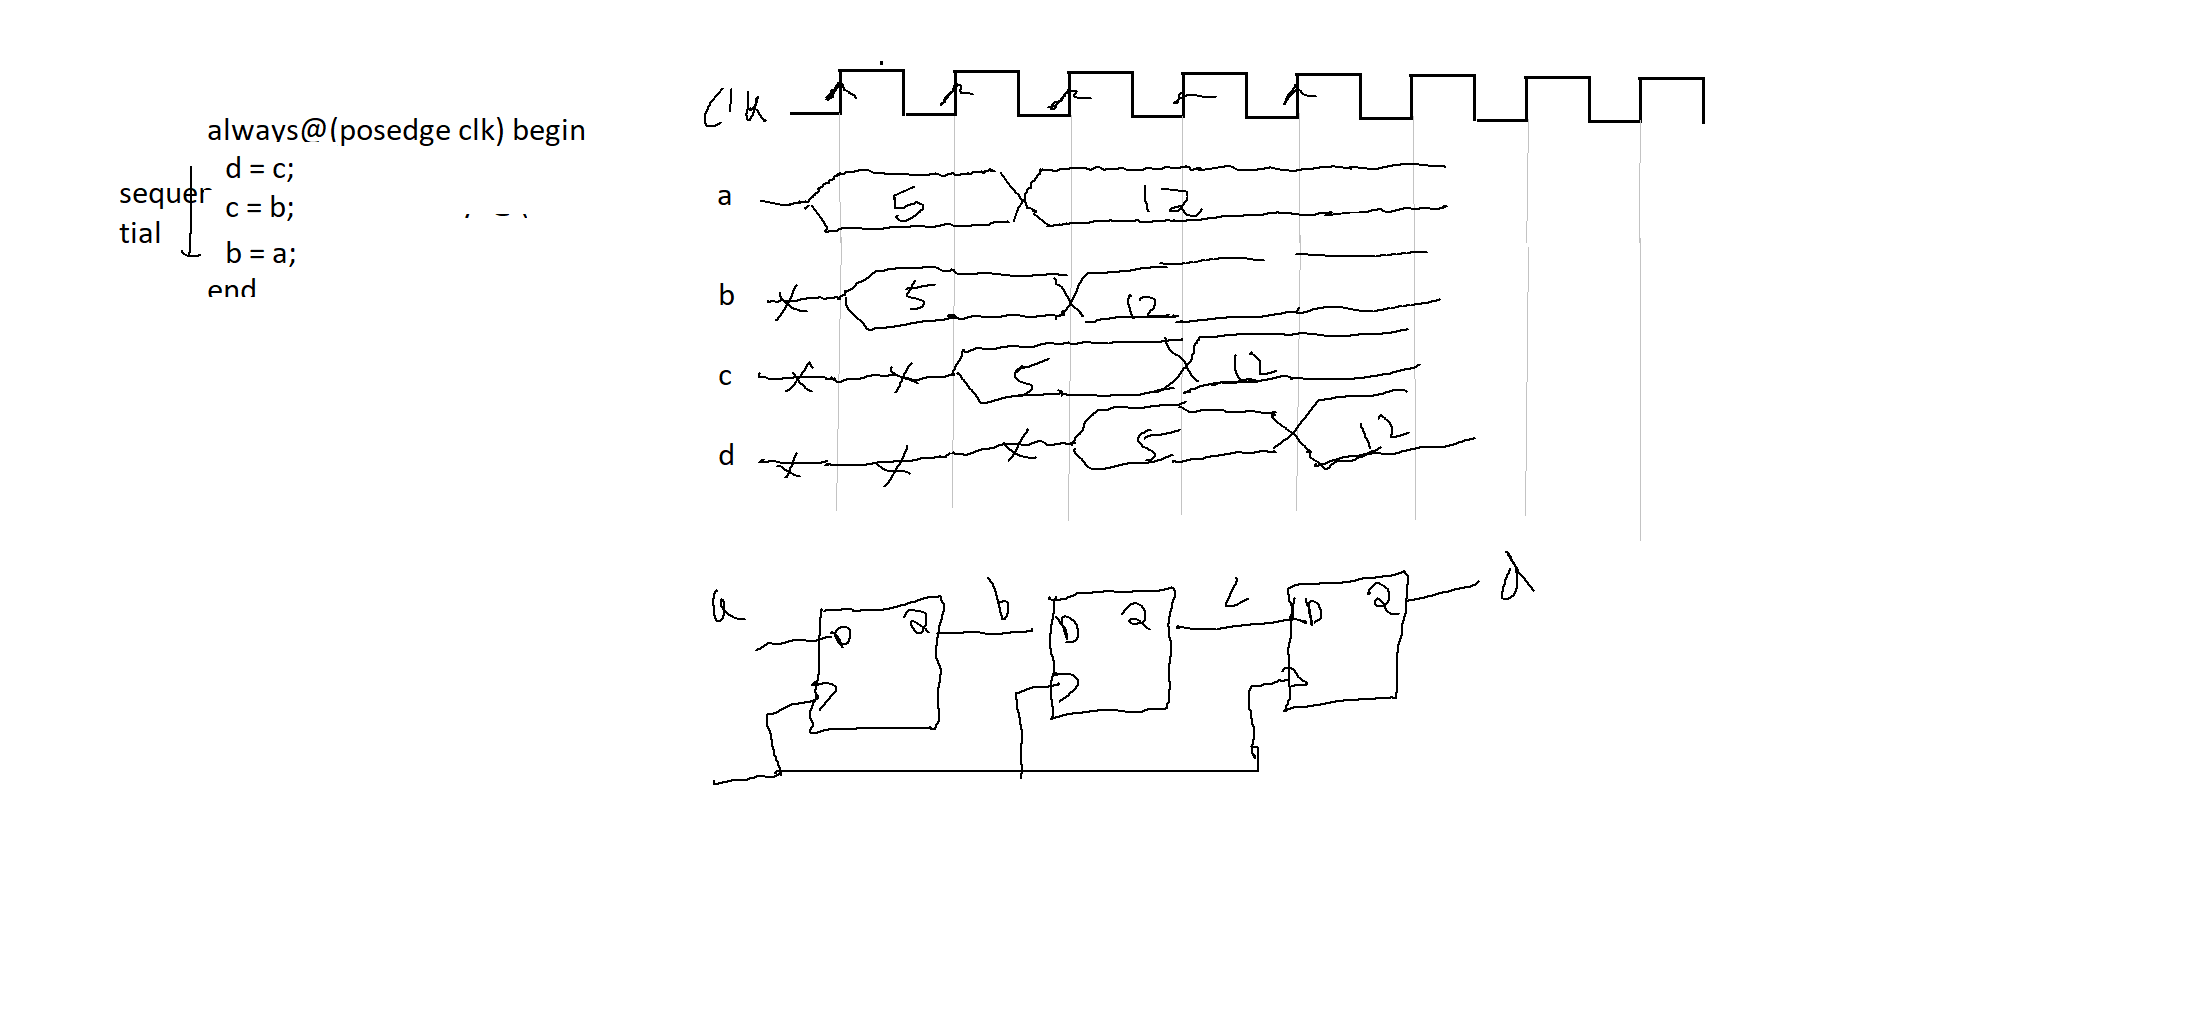 always@(posedge clk) begin
d = c;
c = b;
b = a;
end
sequer
tial
Clk
a 5 12
b X 5 12
c X X 5 12
d X X X 5 12
a D Q b D Q c D Q d